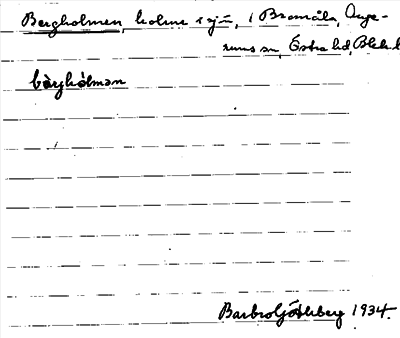 Bergholmen, holme i sjö, i Bromåla, Ange-
rums sn, Östra hd, Blek.l
bärghòlmən
Barbro Götheberg 1934.